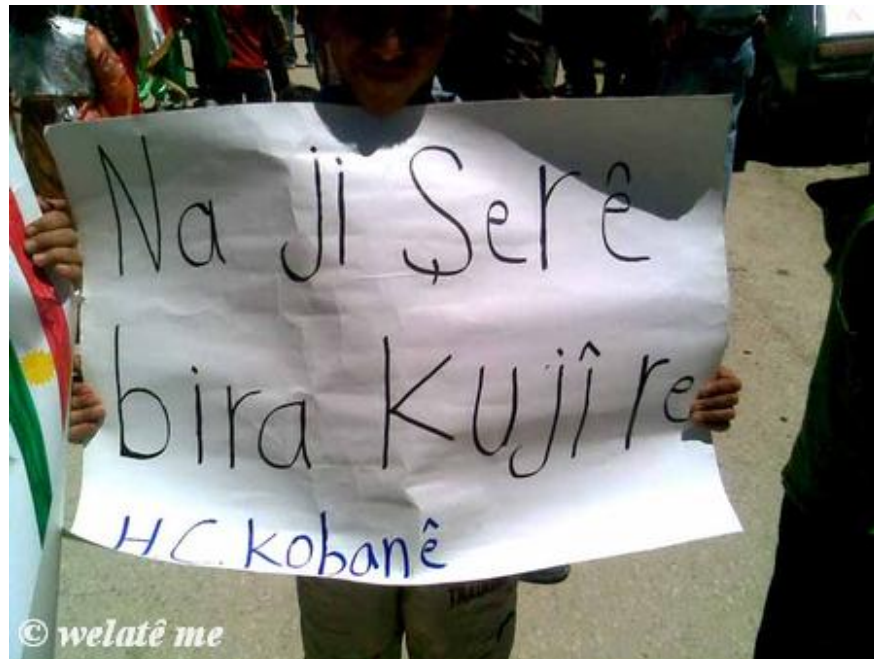 Na ji Şerê
bira Kujî re
H C. Kobanê
© welatê me